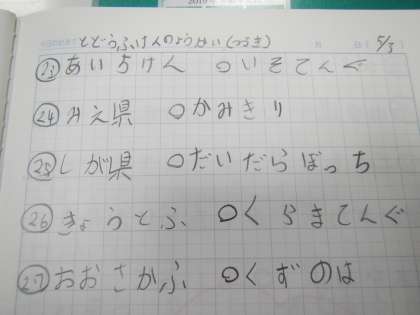 とどうふけんのようかい(つづき) 5/3
㉓あいちけん ○いそてんぐ
㉔みえ県 ○かみきり
㉕しが県 ○だいだらぼっち
㉖きょうとふ ○くらまてんぐ
㉗おおさかふ ○くずのは